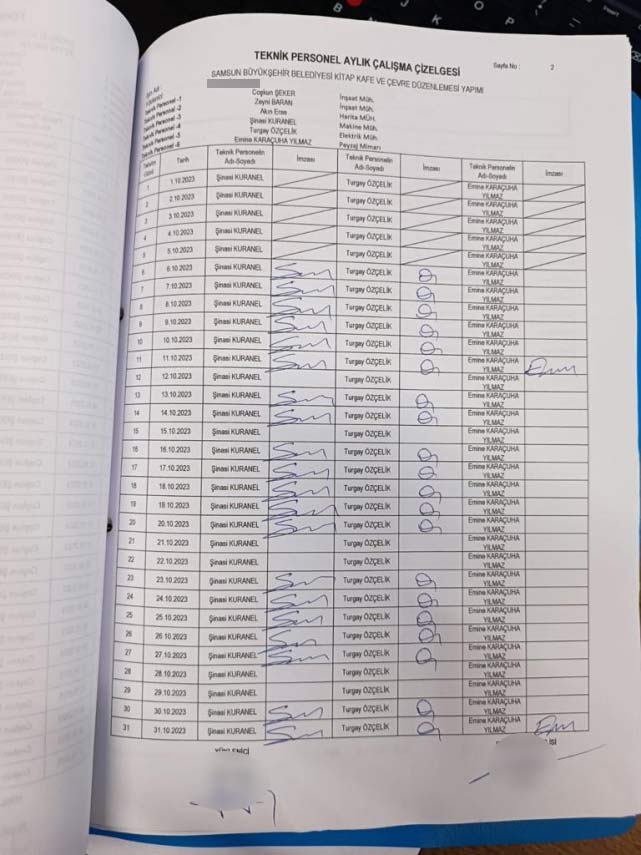 TEKNİK PERSONEL AYLIK ÇALIŞMA ÇİZELGESİ
Sayfa No : 2
SAMSUN BÜYÜKŞEHİR BELEDİYESİ KİTAP KAFE VE ÇEVRE DÜZENLEMESİ YAPIMI
Teknik Personel -1 Coşkun ŞEKER İnşaat Müh.
Teknik Personel -2 Zeyni BARAN İnşaat Müh.
Teknik Personel -3 Akın Eren Harita MÜH.
Teknik Personel -4 Şinasi KURANEL Makine Müh.
Teknik Personel -5 Turgay ÖZÇELİK Elektrik Müh.
Teknik Personel -6 Emine KARAÇUHA YILMAZ Peyzaj Mimarı
Takvim Günü Tarih Teknik Personelin Adı-Soyadı İmzası Teknik Personelin Adı-Soyadı İmzası Teknik Personelin Adı-Soyadı İmzası
1 1.10.2023 Şinasi KURANEL Turgay ÖZÇELİK Emine KARAÇUHA YILMAZ
2 2.10.2023 Şinasi KURANEL Turgay ÖZÇELİK Emine KARAÇUHA YILMAZ
3 3.10.2023 Şinasi KURANEL Turgay ÖZÇELİK Emine KARAÇUHA YILMAZ
4 4.10.2023 Şinasi KURANEL Turgay ÖZÇELİK Emine KARAÇUHA YILMAZ
5 5.10.2023 Şinasi KURANEL Turgay ÖZÇELİK Emine KARAÇUHA YILMAZ
6 6.10.2023 Şinasi KURANEL Turgay ÖZÇELİK Emine KARAÇUHA YILMAZ
7 7.10.2023 Şinasi KURANEL Turgay ÖZÇELİK Emine KARAÇUHA YILMAZ
8 8.10.2023 Şinasi KURANEL Turgay ÖZÇELİK Emine KARAÇUHA YILMAZ
9 9.10.2023 Şinasi KURANEL Turgay ÖZÇELİK Emine KARAÇUHA YILMAZ
10 10.10.2023 Şinasi KURANEL Turgay ÖZÇELİK Emine KARAÇUHA YILMAZ
11 11.10.2023 Şinasi KURANEL Turgay ÖZÇELİK Emine KARAÇUHA YILMAZ
12 12.10.2023 Şinasi KURANEL Turgay ÖZÇELİK Emine KARAÇUHA YILMAZ
13 13.10.2023 Şinasi KURANEL Turgay ÖZÇELİK Emine KARAÇUHA YILMAZ
14 14.10.2023 Şinasi KURANEL Turgay ÖZÇELİK Emine KARAÇUHA YILMAZ
15 15.10.2023 Şinasi KURANEL Turgay ÖZÇELİK Emine KARAÇUHA YILMAZ
16 16.10.2023 Şinasi KURANEL Turgay ÖZÇELİK Emine KARAÇUHA YILMAZ
17 17.10.2023 Şinasi KURANEL Turgay ÖZÇELİK Emine KARAÇUHA YILMAZ
18 18.10.2023 Şinasi KURANEL Turgay ÖZÇELİK Emine KARAÇUHA YILMAZ
19 19.10.2023 Şinasi KURANEL Turgay ÖZÇELİK Emine KARAÇUHA YILMAZ
20 20.10.2023 Şinasi KURANEL Turgay ÖZÇELİK Emine KARAÇUHA YILMAZ
21 21.10.2023 Şinasi KURANEL Turgay ÖZÇELİK Emine KARAÇUHA YILMAZ
22 22.10.2023 Şinasi KURANEL Turgay ÖZÇELİK Emine KARAÇUHA YILMAZ
23 23.10.2023 Şinasi KURANEL Turgay ÖZÇELİK Emine KARAÇUHA YILMAZ
24 24.10.2023 Şinasi KURANEL Turgay ÖZÇELİK Emine KARAÇUHA YILMAZ
25 25.10.2023 Şinasi KURANEL Turgay ÖZÇELİK Emine KARAÇUHA YILMAZ
26 26.10.2023 Şinasi KURANEL Turgay ÖZÇELİK Emine KARAÇUHA YILMAZ
27 27.10.2023 Şinasi KURANEL Turgay ÖZÇELİK Emine KARAÇUHA YILMAZ
28 28.10.2023 Şinasi KURANEL Turgay ÖZÇELİK Emine KARAÇUHA YILMAZ
29 29.10.2023 Şinasi KURANEL Turgay ÖZÇELİK Emine KARAÇUHA YILMAZ
30 30.10.2023 Şinasi KURANEL Turgay ÖZÇELİK Emine KARAÇUHA YILMAZ
31 31.10.2023 Şinasi KURANEL Turgay ÖZÇELİK Emine KARAÇUHA YILMAZ
YÜKLENİCİ